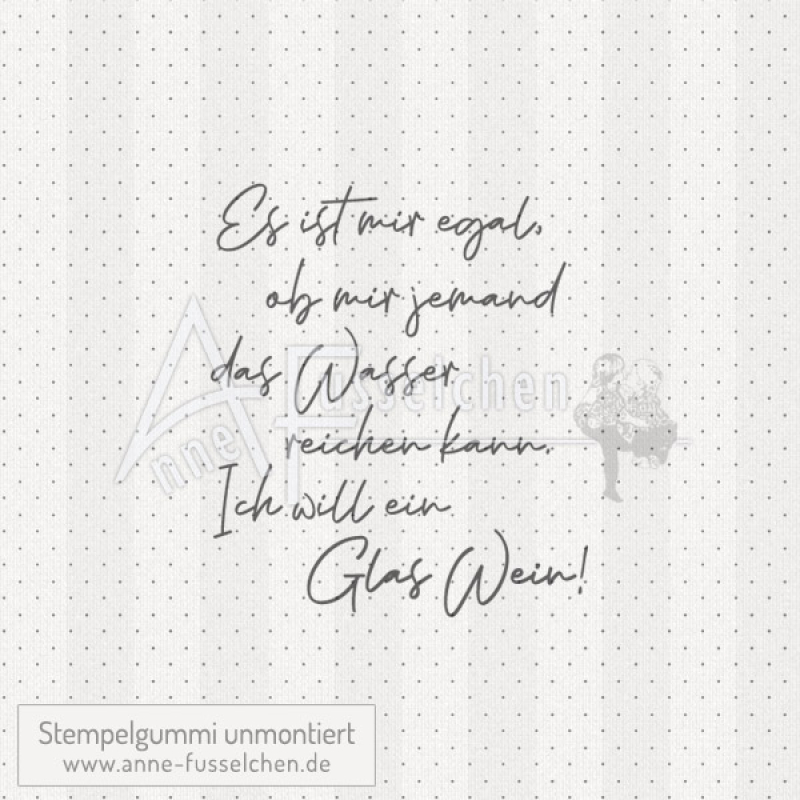 Es ist mir egal,
ob mir jemand
das Wasser
reichen kann.
Ich will ein
Glas Wein!
Anne Fusselchen
Stempelgummi unmontiert
www.anne-fusselchen.de